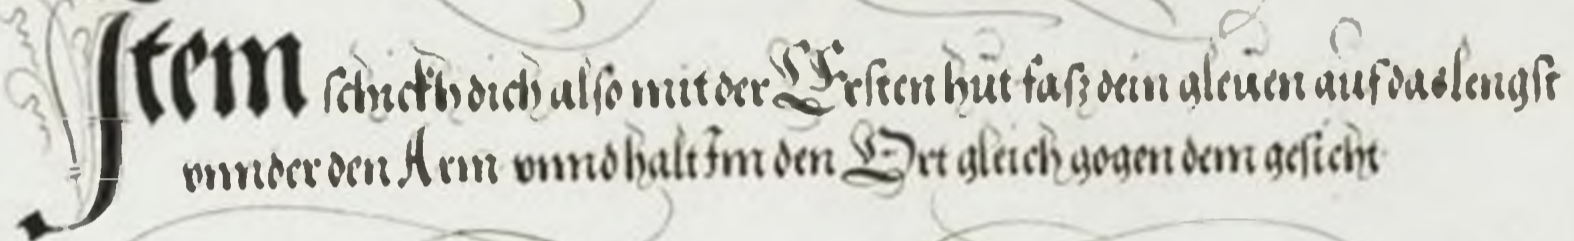 Item schickh dich also mit der Ersten hůt fasz dein gleůen aůf das lengst
vnnder den Arm vnnd halt Im den Ort gleich gogen dem gesicht